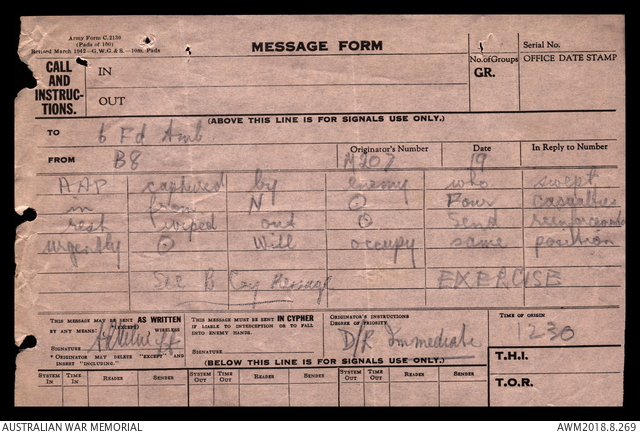 Army Form C.2136
(Pads of 100)
Revised March 1942
MESSAGE FORM
No. of Groups
GR.
Serial No.
OFFICE DATE STAMP
CALL AND INSTRUC-TIONS.
IN
OUT
(ABOVE THIS LINE IS FOR SIGNALS USE ONLY.)
TO 6 Fd Amb
FROM B8
Originator's Number A207
Date 19
In Reply to Number
AAP captured by enemy who swept
in from N ⊙ Four casualties
rest wiped out ⊙ Send reinforcements
urgently ⊙ Will occupy same position
B Coy Message EXERCISE
THIS MESSAGE MAY BE SENT AS WRITTEN
BY ANY MEANS. (EXCEPT) WIRELESS
SIGNATURE
* ORIGINATOR MAY DELETE "EXCEPT" AND INSERT "INCLUDING."
THIS MESSAGE MUST BE SENT IN CYPHER
IF LIABLE TO INTERCEPTION OR TO FALL INTO ENEMY HANDS.
SIGNATURE
ORIGINATOR'S INSTRUCTIONS
DEGREE OF PRIORITY
D/R Immediate
TIME OF ORIGIN
1230
T.H.I.
T.O.R.
(BELOW THIS LINE IS FOR SIGNALS USE ONLY.)
SYSTEM IN TIME IN READER SENDER SYSTEM OUT TIME OUT READER SENDER SYSTEM OUT TIME OUT READER SENDER
AUSTRALIAN WAR MEMORIAL
AWM2018.8.269